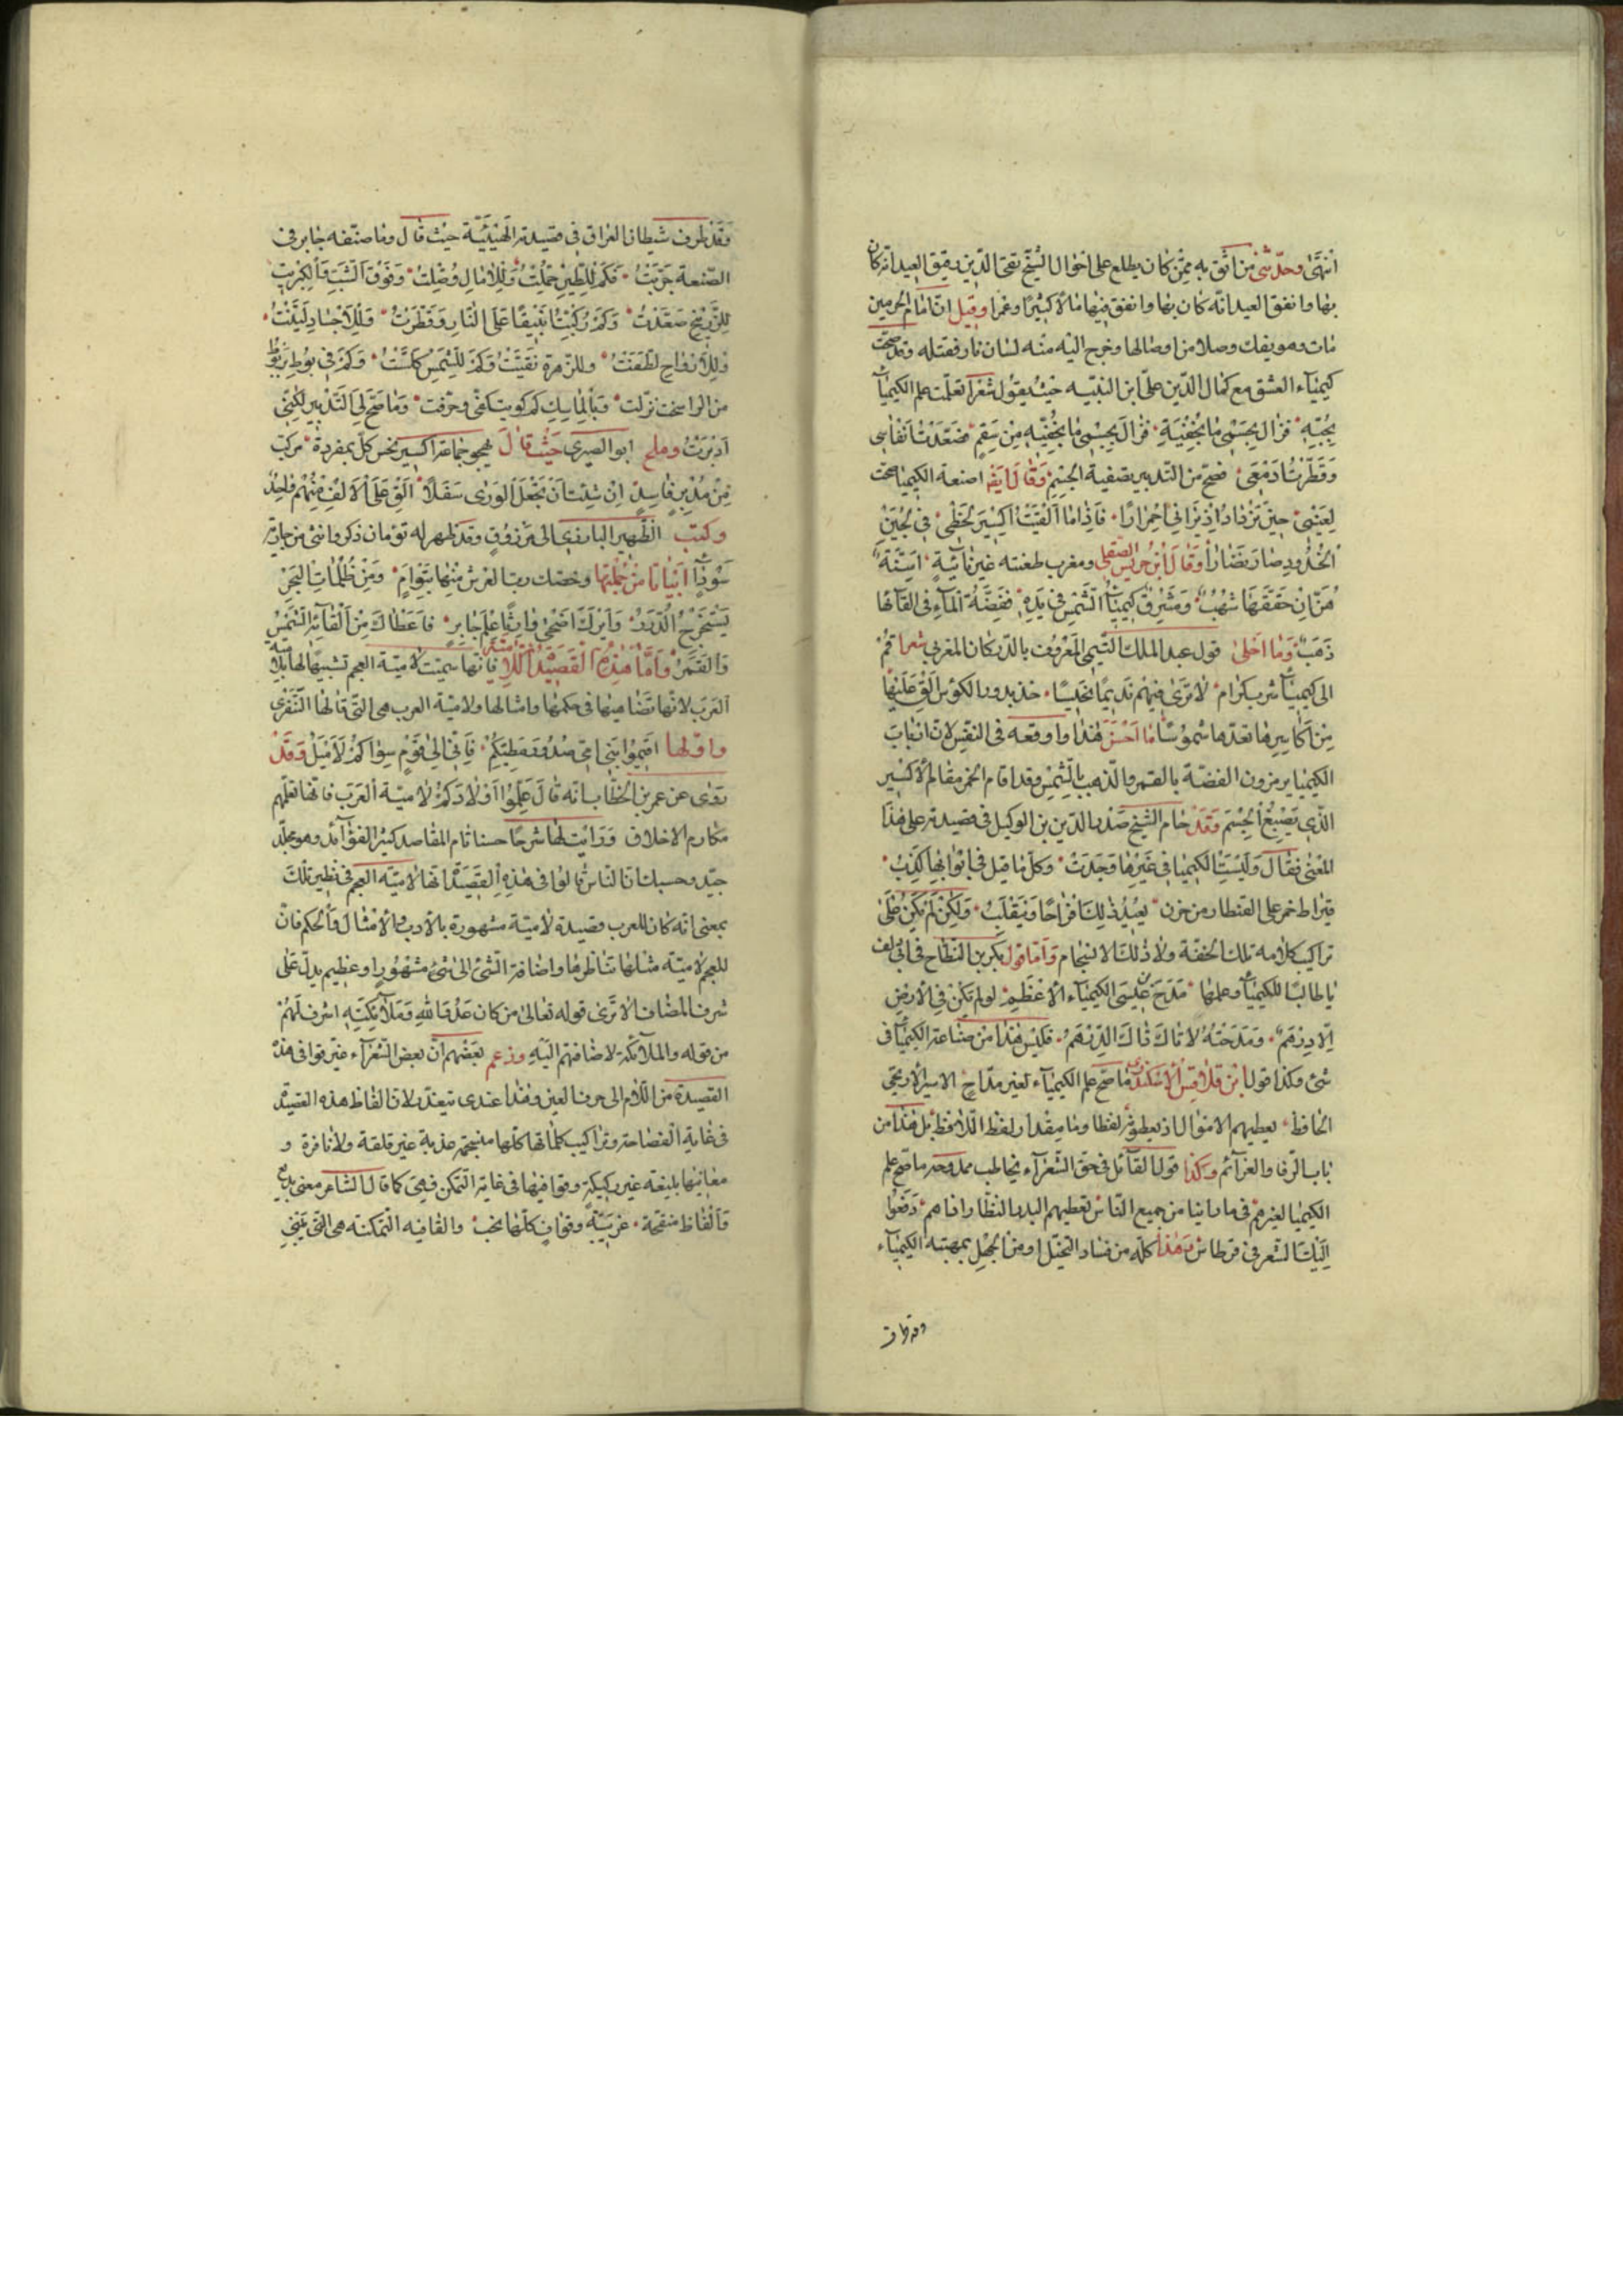 انتهى وحدثنى من اثق به ممن كان يطلع على احوال الشيخ تقى الدين دقيق العيد انه كان
بها وانفق العيد انه كان بها وانفق فيها مالا كبيرا وعمرا وقيل ان امام الحرمين
مات وهو يفك وصلا من اوصالها وخرج اليه منه لسان نار فقتله وقد صحت
كيمياء العشق مع كمال الدين على ابن النبيه حيث يقول شعرا تعلمت علم الكيمياء
بحبه فزال بجسمى ما بجفنيه فزال بجسمى ما بجفنيه من سقم فصعدت انفاسى
وقطرت ادمعى فصح من التدبير تصفية الجسم وقال ايضا صنعة الكيميا صحت
لعينى حين تزداد اذ ترانى احمرارا فاذا ما القيت اكسير لحظى فى لجين
الخدود صار نضارا وقال ابن حمديس الصقلى ومغرب طعنته غير نابية اسنة
هن ان حققتها شهب ومشرق كيمياء الشمس فى يده ففضة الماء فى القائها
ذهب وما احلى قول عبد الملك التيمى المعروف بالدركان المغربى شعرا قم
الى كيمياء شرب كرام لا ترى فيهم نديما خسيسا خذ بدور الكؤس الق عليها
من اكاسيرها تعدها شموسا ما احسن هذا وا وقعه فى النفس لان ارباب
الكيميا يرمزون الفضة بالقمر والذهب بالشمس وقد اقام الخمر مقام الاكسير
الذى يصبغ الجسم وقد حام الشيخ صدر الدين بن الوكيل فى قصيدته على هذا
المعنى فقال وليست الكيميا فى غيرها وجدت وكل ما قيل فى ابوابها كذب
قيراط خمر على القنطار من حزن يعيد ذلك افراحا وينقلب ولكن لم يكن على
تراكيب كلامه تلك الخفة ولا ذلك الانسجام واما قول بكر بن النطاح فى ابى دلف
يا طالبا للكيمياء وعلمها مدح عيسى الكيمياء الاعظم لو لم يكن فى الارض
الا درهم ومدحته لاتاك ذاك الدرهم فليس هذا من صناعة الكيمياء فى
شئ وكذا قول ابن قلاقس الاسكندرى ما صح علم الكيمياء لغير مداح الامير الاريحى
الحافظ يعطيهم الاموال اذ يعطوه لفظا وما مقدار لفظ اللافظ بل هذا من
باب الرقا والعزائم وكذا قول القائل فى حق الشعراء يخاطب ممدوحه ما صح علم
الكيميا لغيرهم فى ما راينا من جميع الناس تعطيهم البدر النضار اذا هم دفعوا
اليك الشعر فى قرطاس وهذا كله من فساد التخيل او من الجهل بمهنته الكيمياء
وقد ظرف
وقد ظرف شيطان العراق فى قصيدته الهيتيية حيث قال وما صنفه جابر فى
الصنعة جربت فكم للطين حملت وللامال وصلت وفوق الشب والكبريت
للزرنيخ صعدت وكم ركبت انبيقا على النار وقطرت وللاجساد لينت
وللارواح لطفت وللزهرة نقيت وكم للشمس كلست وكم فى بوط بربوط
من الراسخت نزلت وبالماسك كم كويت كفى وحرقت وما صح لى التدبير لكننى
ادبرت وملح ابو الصيرى حيث قال يهجو جماعة اكسير نحس كل بمفرده مركب
من مدبر فاسد ان شئت ان تجعل الورى سفلا الق على الالف منهم واحد
وكتب الظهير البارزى الى مرزوق وقد ظهر له تومان ذكر وانثى من جارية
سوداء ابياتا من جملتها وخصك رب العرش منها بتوام ومن ظلمات البحر
يستخرج الدرر وابرك اضحى وارثا علم جابر فاعطاك من القائه الشمس
والقمر واما هذه القصيدة اللامية فانها سميت لامية العجم تشبيها لها بلامية
العرب لانها تضاهيها فى حكمها وامثالها ولامية العرب هى التى قالها الشنفرى
واولها اقيموا بنى امى صدور مطيكم فانى الى قوم سواكم لاميل وقد
روى عن عمر بن الخطاب انه قال علموا اولادكم لامية العرب فانها تعلمهم
مكارم الاخلاق ورايت لها شرحا حسنا تام المقاصد كثير الفوائد وهو مجلد
جيد وحسبك ان الناس قالوا فى هذه القصيدة انها لامية العجم فى نظير تلك
بمعنى انه كان للعرب قصيدة لامية مشهورة بالادب والامثال والحكم فان
للعجم لامية مثلها تناظرها واضافة الشئ الى شئ مشهور او عظيم يدل على
شرف المضاف الا ترى قوله تعالى من كان عدوا لله وملائكته اشرف لهم
من قوله والملائكة لاضافتهم اليه وزعم بعضهم ان بعض الشعراء غير قوافى هذه
القصيدة من اللام الى حرف العين وهذا عندى يتعذر لان الفاظ هذه القصيدة
فى غاية الفصاحة وتراكيب كلماتها كلها منسجمة عذبة غير قلقة ولا نافرة و
معانيها بليغة غير ركيكة وقوافيها فى غاية التمكن فهى كما قال الشاعر معنى بديع
والفاظ منقحة غريبة وقواف كلها نخب والقافيه المتمكنه هى التى يبنى